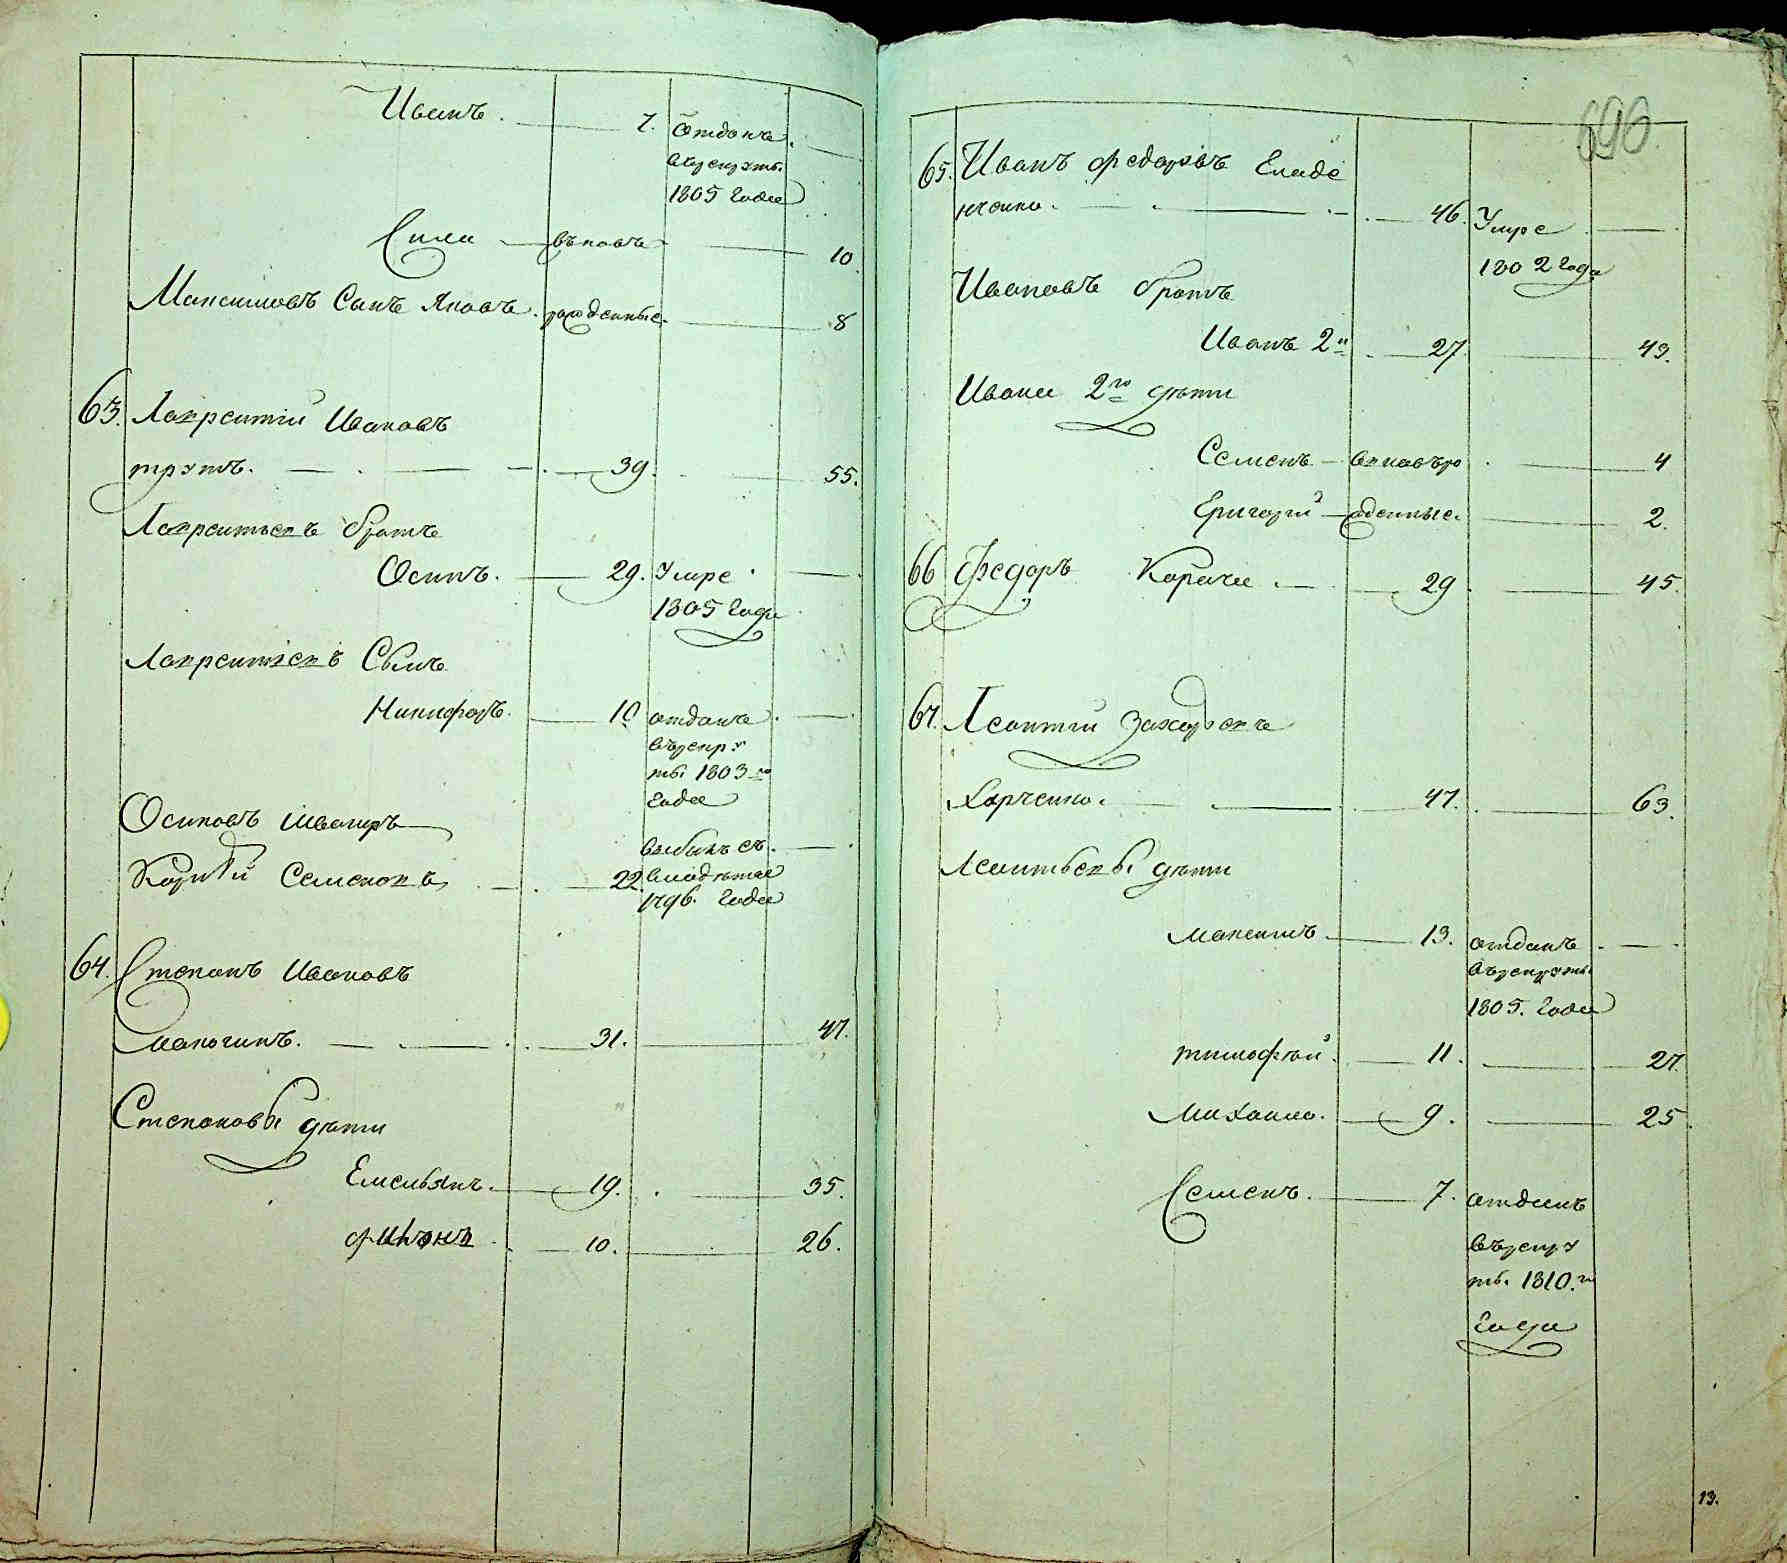 Иванъ. 7. отданъ
врекруты.
1805 года
Сила въновь 10
Максимовъ Сынъ Яковъ. рожденные. 8
63. Лаврентий Ивановъ
39. 55.
Лаврентьевъ братъ
Осипъ. 29. Умре
1805 года
Лаврентиевъ Сынъ
Никифоръ. 10 отданъ
върекру
ты 1803 го
года
Осиповъ шваиръ
выбылъ съ.
Семеновъ 22.
1796. года
64. Степанъ Ивановъ
Маногинъ. 31. 47.
Степановы дети
Емельянъ. 19. 35.
10. 26.
696
65. Иванъ Федоровъ
46. Умре
1802 года
Ивановъ братъ
Иванъ 2й 27 43.
Ивана 2го дети
Семенъ въновь ро 4
Григорий жденные. 2.
66 Федоръ 29 45.
67. Леонтий Захаровъ
Харченко. 47. 63.
Леонтьевы дети
Максимъ 13. отданъ
върекруты
1805. года
тимофей. 11. 27.
Михаило. 9. 25
Семенъ. 7. отданъ
върекру
ты. 1810. го
года
13.